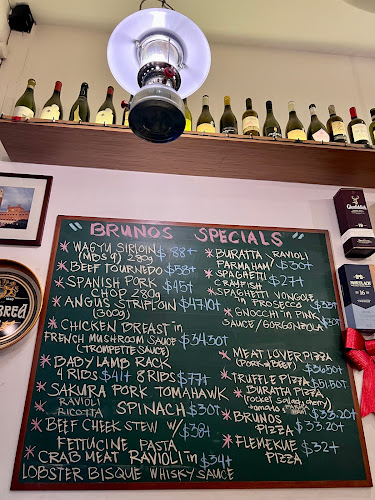 "BRUNOS SPECIALS"
* WAGYU SIRLOIN $88+
(MBS 9) 280g
* BEEF TOURNEDO $58+
* SPANISH PORK $45+
CHOP 280g
* ANGUS STRIPLOIN $47.10+
(300g)
* CHICKEN BREAST in
FRENCH MUSHROOM SAUCE $34.30+
(TROMPETTE SAUCE)
* BABY LAMB RACK
4 RIBS $41+ 8 RIBS $77+
* SAKURA PORK TOMAHAWK
RAVIOLI
RICOTTA SPINACH $30+
* BEEF CHEEK STEW W/ $38+
FETTUCINE PASTA
* CRAB MEAT RAVIOLI in $34+
LOBSTER BISQUE WHISKY SAUCE
* BURATTA RAVIOLI
PARMA HAM/ $30+
* SPAGHETTI
CRAYFISH $27+
* SPAGHETTI VONGOLE
FRESCO $33+
* GNOCCHI in PINK
SAUCE/GORGONZOLA
* MEAT LOVER PIZZA
(PORK & BEEF) $36.50+
* TRUFFLE PIZZA $51.50+
* BURATTA PIZZA
(rocket salad, cherry
tomato & $33.20+
* BRUNOS
PIZZA $33.20+
* FLEMEKUE $32+
PIZZA
Glenfiddich